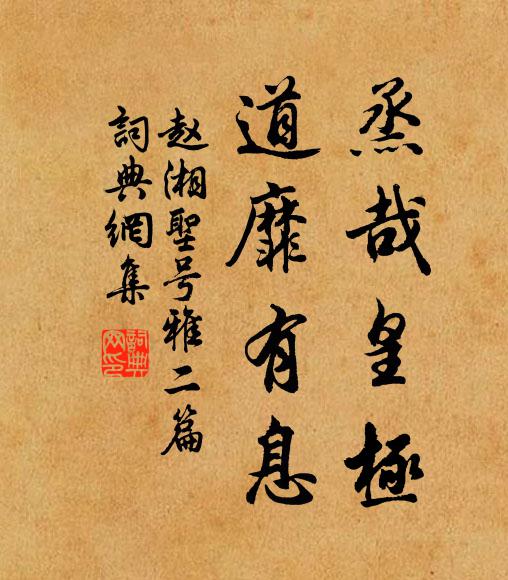 烝哉皇極
道靡有息
赵湘聖号雅二篇
詞典網集
詞典网印